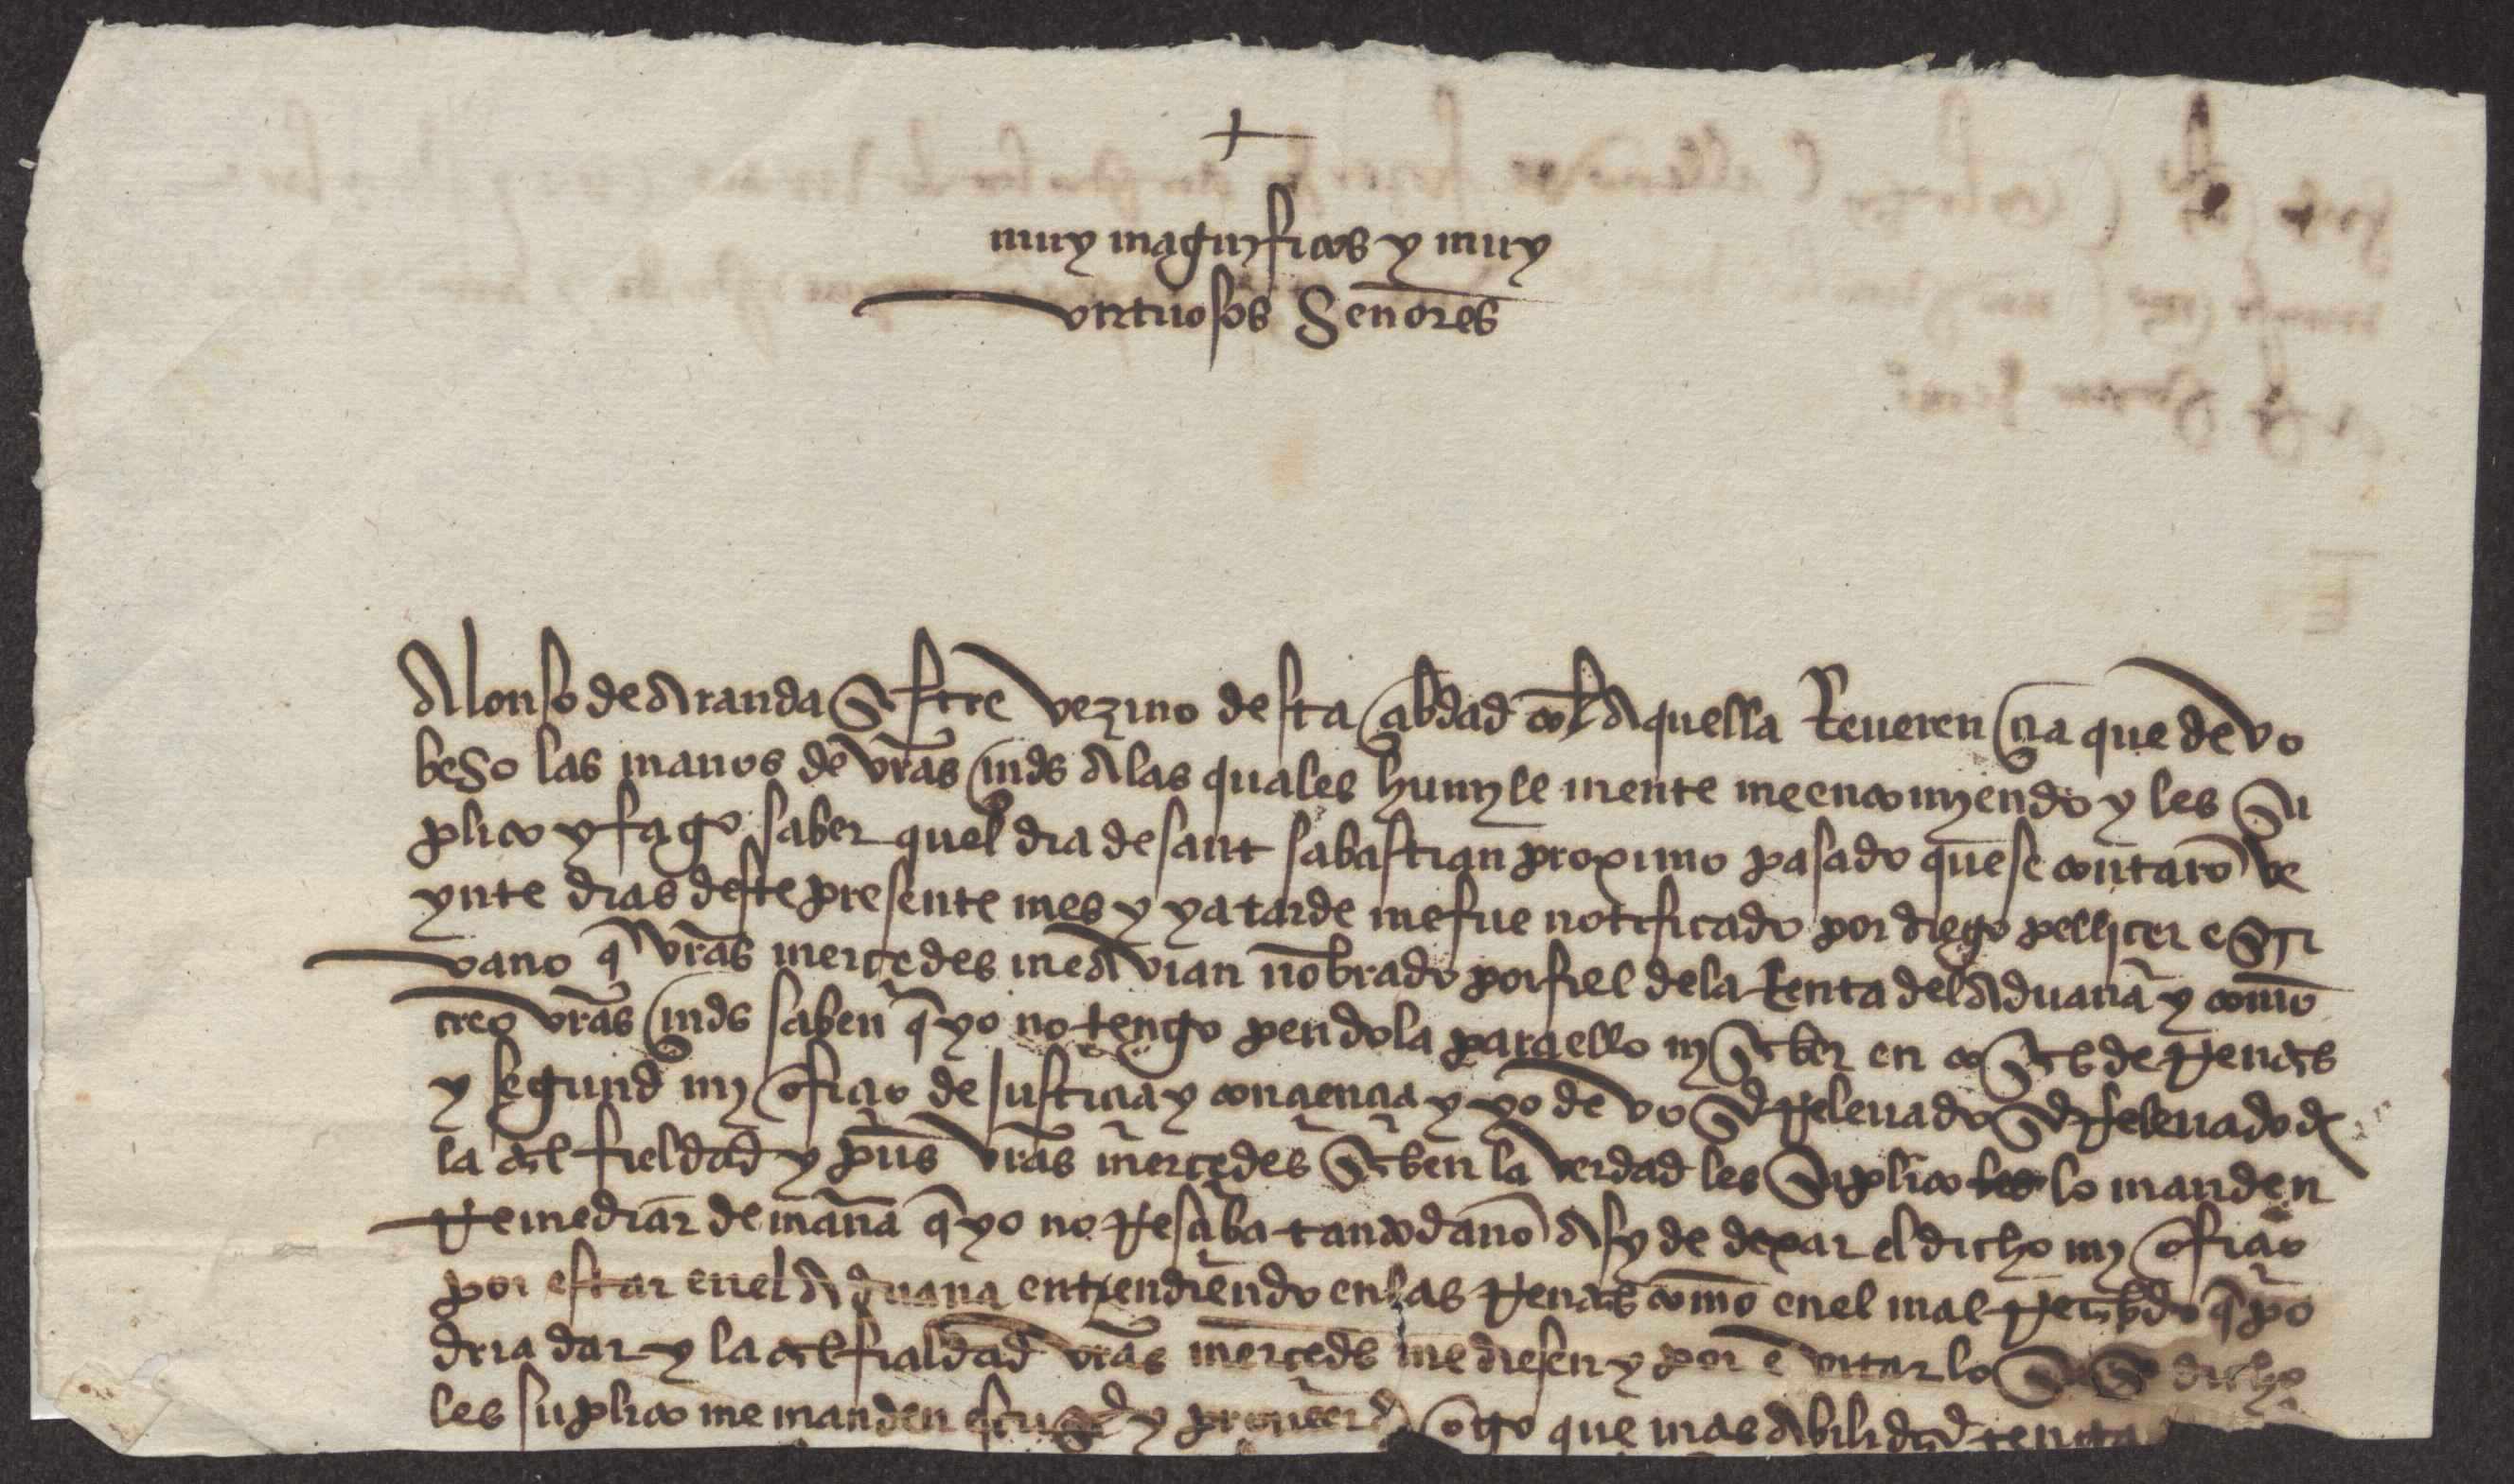 +
muy magnificos y muy
virtuosos Señores
Alonso de Aranda sastre vezino desta çibdad con Aquella Reuerençia que devo
beso las manos de vras mds Alas quales humyle mente meencomyendo y les su
plico y fago saber quel dia de sant sabastian proximo pasado quese contarō ve
ynte dias deste presente mes y ya tarde mefue notificado por diego pelliçer escri
vano q̄ vras merçedes meAvian nōbrado por fiel dela Renta delAduana y como
creo vras mds saben q̄ yo no tengo pendola paraello ny saber en cosas de Rentas
y segund my ofiçio de justiçia y conçençia y yo devo ser Releuado ser Releuado de
la tal fieldad y pus vras merçedes saben la verdad les suplico les lo manden
Remediar de mana q̄ yo no Resçiba tanto dano Asy de dexar el dicho my ofiçio
por estar enel Aduana entendiendo enlas Rentas como enel mal Recabdo q̄ po
dria dar y la tal fialdad vras merçeds me diesen y por evitar lo suso dicho
les suplico me manden escusar y proueer a otro que mas Abilidad tenga